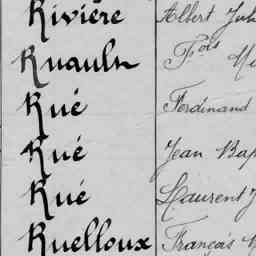 Rivière Albert Jul
Ruault Fçois
Rué Ferdinand
Rué Jean Bap
Rué Laurent J
Ruelloux François